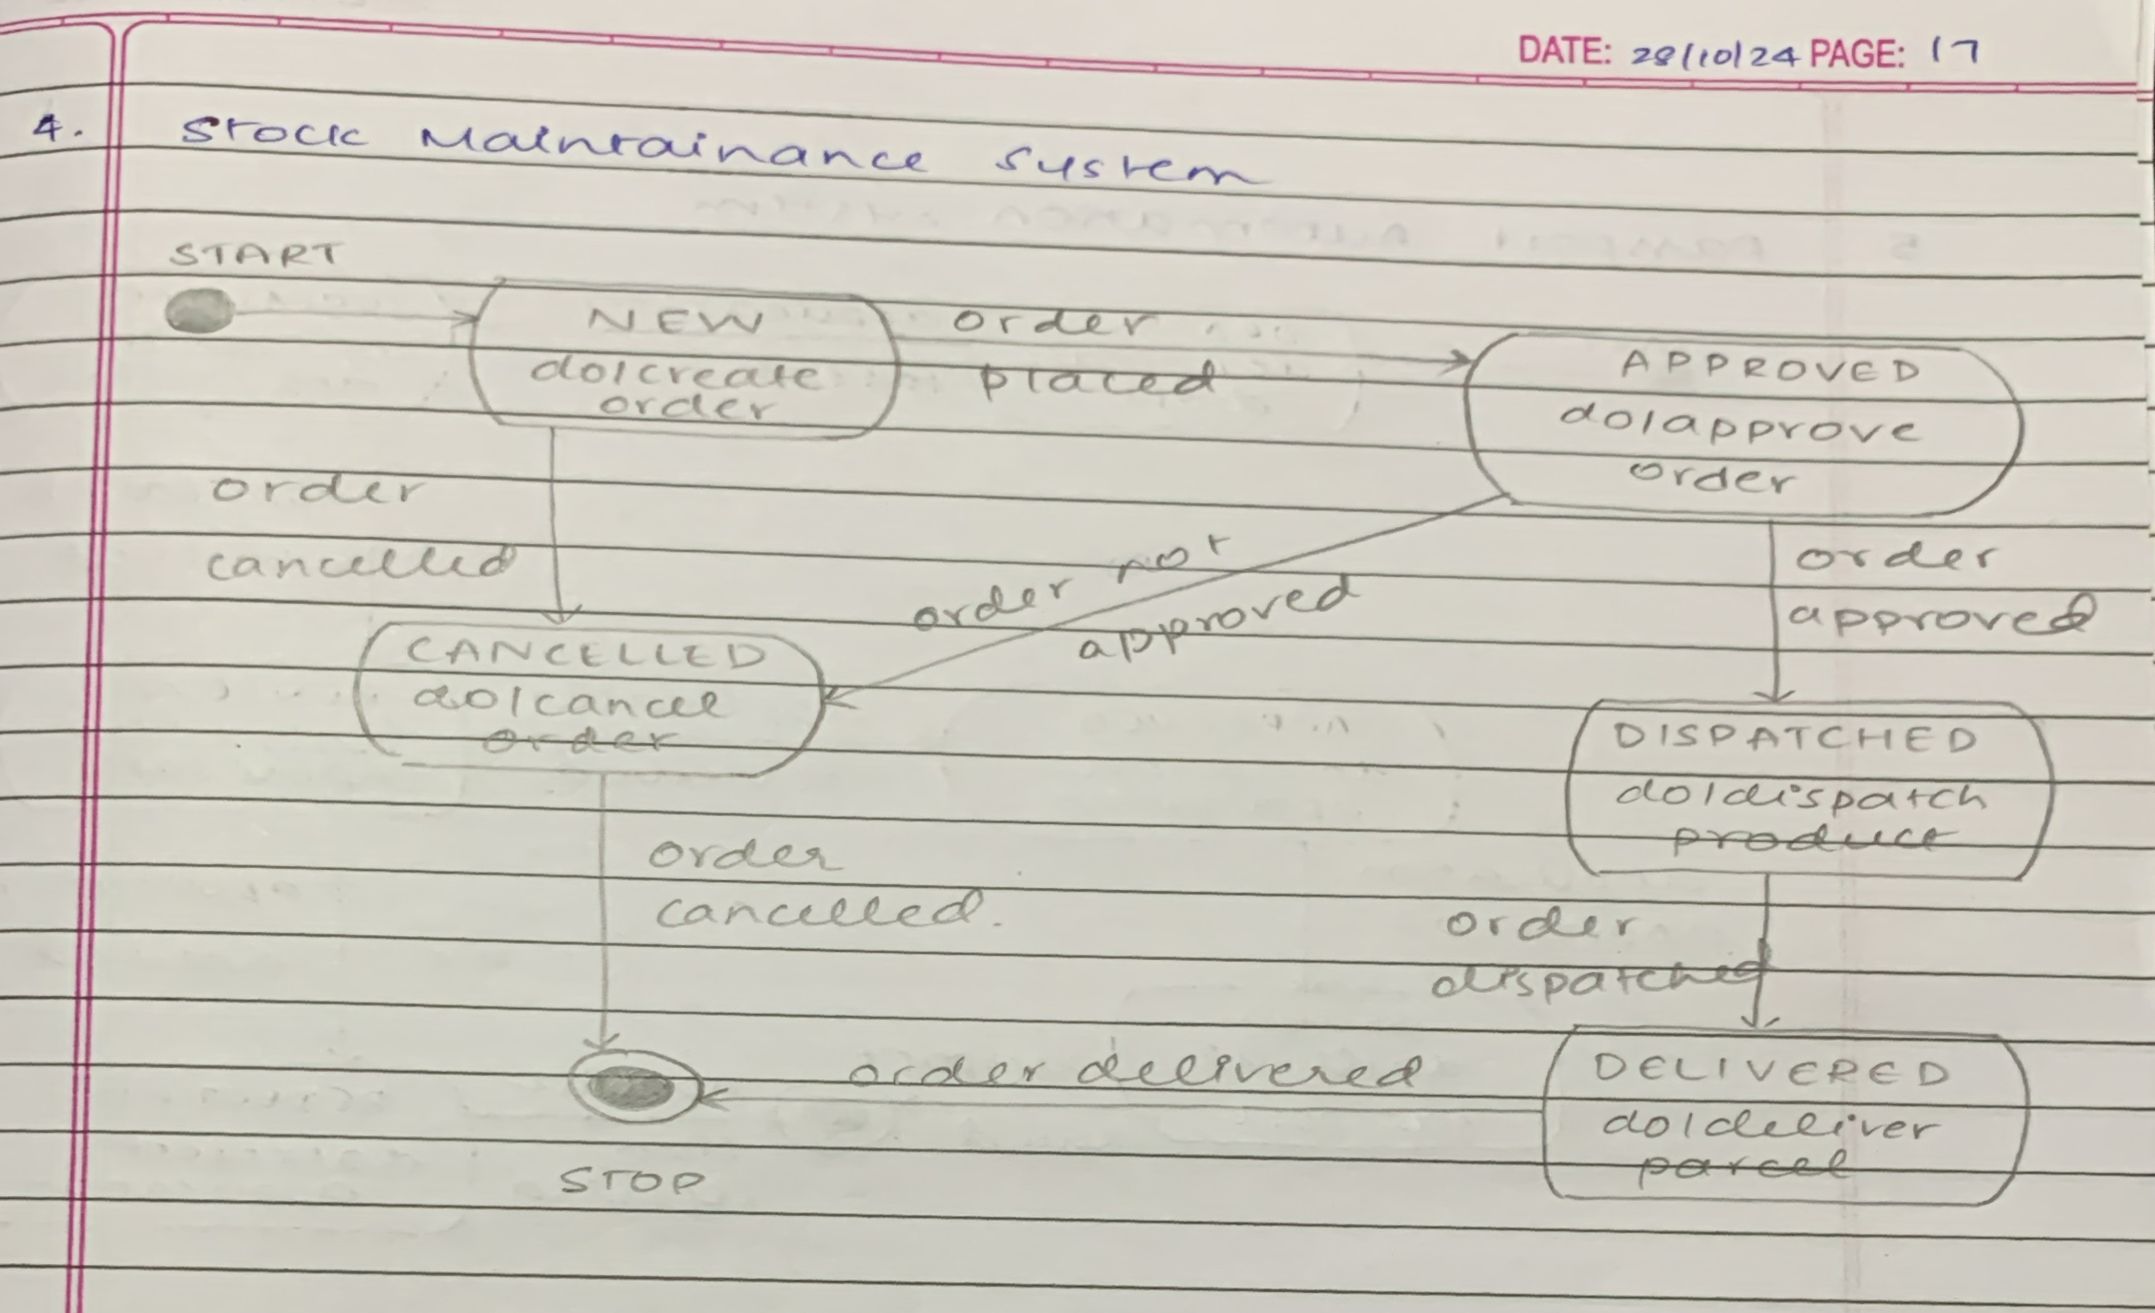 DATE: 28/10/24 PAGE: 17
4. Stock Maintainance System
START
NEW
do/create
order
order
placed
APPROVED
do/approve
order
order
cancelled
order not
approved
order
approved
CANCELLED
do/cancel
order
DISPATCHED
do/dispatch
product
order
cancelled.
order
dispatched
order delivered
DELIVERED
do/deliver
parcel
STOP